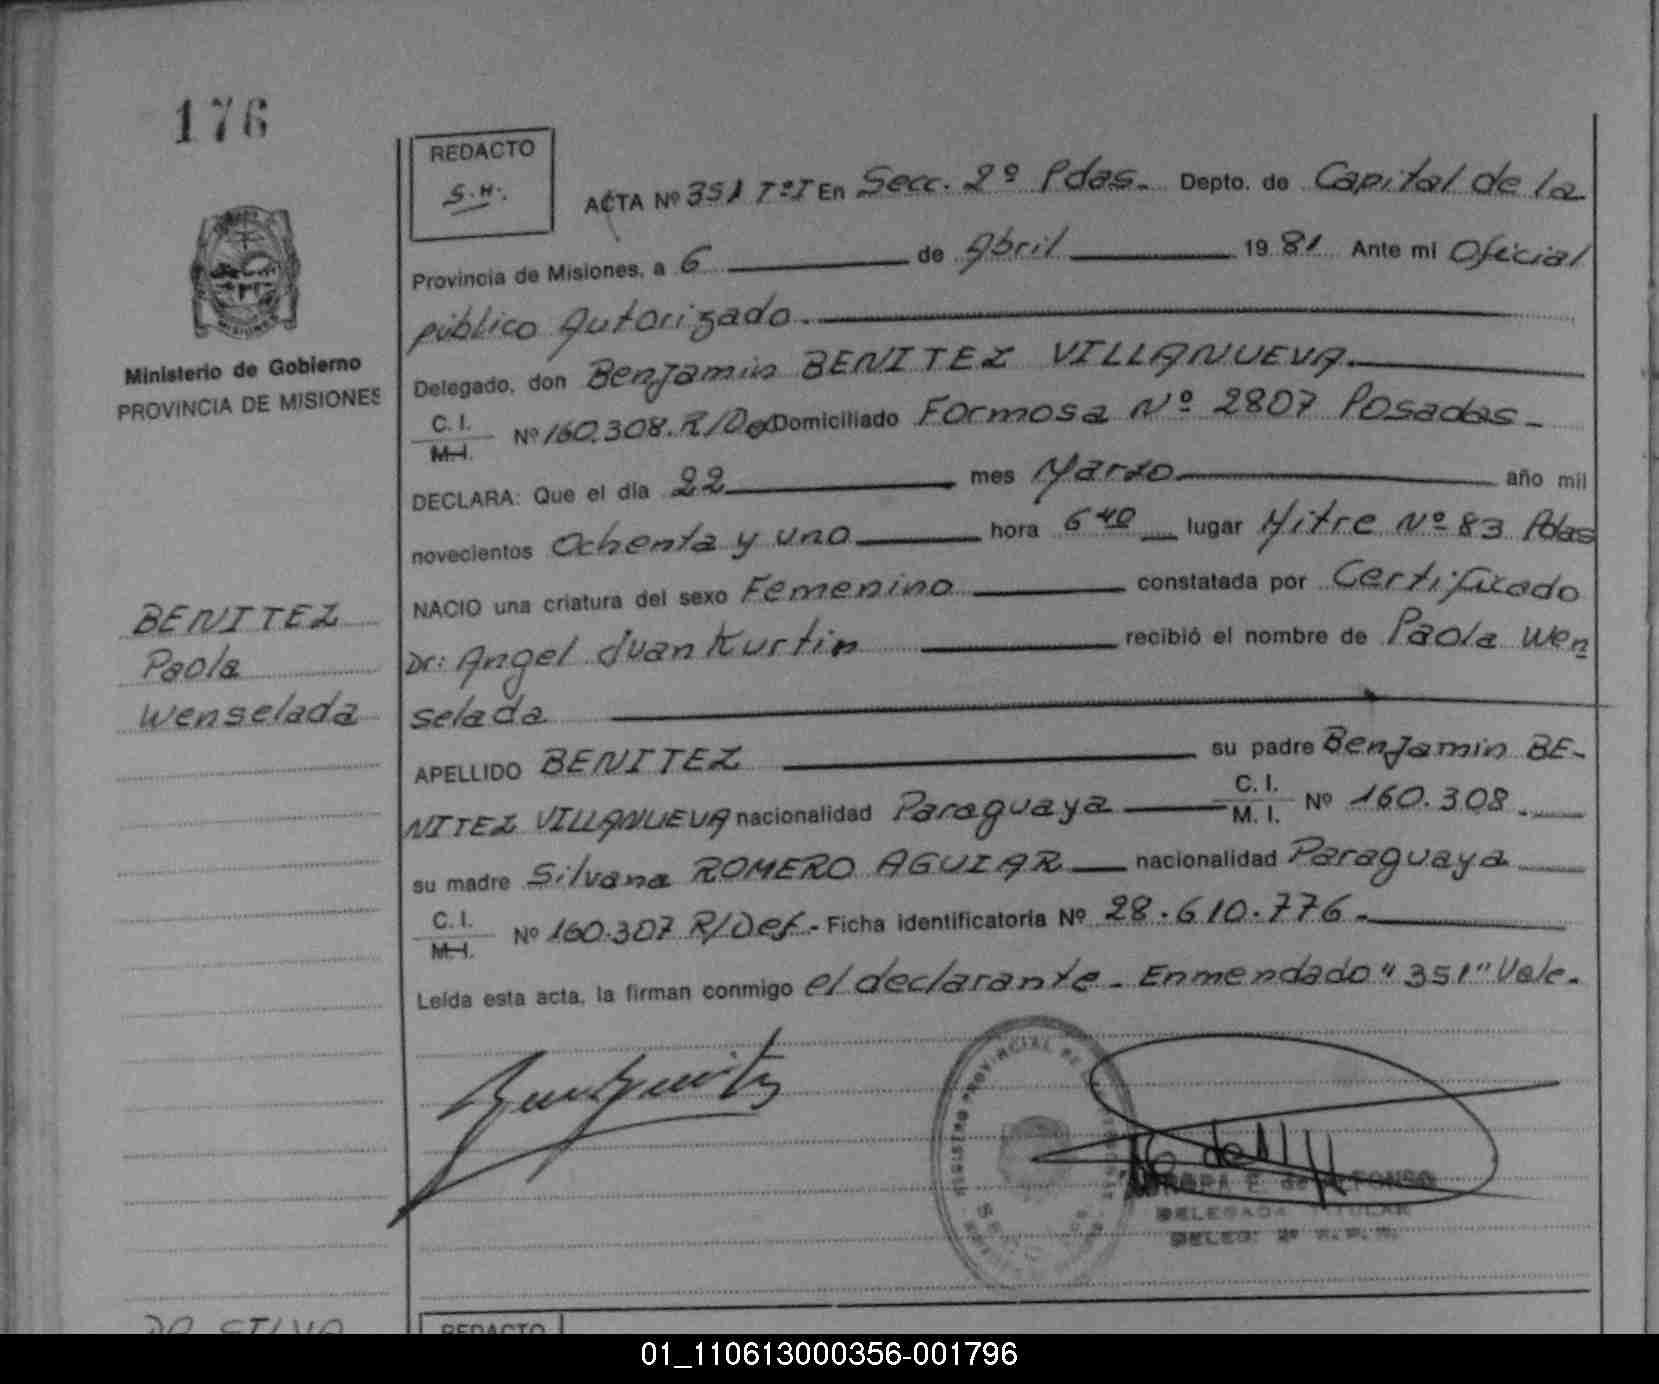 176
REDACTO
S.H.
ACTA Nº 351 Tº I En Secc. 2º Pdas. Depto. de Capital de la
Provincia de Misiones, a 6 de Abril 1981 Ante mi Oficial
público Autorizado.
Ministerio de Gobierno
PROVINCIA DE MISIONES
Delegado, don Benjamin BENITEZ VILLANUEVA.
C. I.
M.I. Nº 160.308. R/Def Domiciliado Formosa Nº 2807 Posadas-
DECLARA: Que el día 22 mes Marzo año mil
novecientos Ochenta y uno hora 6 40 lugar Mitre Nº 83 Pdas
NACIO una criatura del sexo Femenino constatada por Certificado
Dr: Angel Juan Kurtin recibió el nombre de Paola Wen
selada
BENITEZ
Paola
Wenselada
APELLIDO BENITEZ su padre Benjamin BE-
NITEZ VILLANUEVA nacionalidad Paraguaya C. I.
M. I. Nº 160.308.
su madre Silvana ROMERO AGUIAR nacionalidad Paraguaya
C. I.
M.I. Nº 160.307 R/Def.- Ficha identificatoria Nº 28.610.776.
Leída esta acta, la firman conmigo el declarante. Enmendado "351" Vale.
REGISTRO PROVINCIAL DE
E. de ALFONSO
DELEGADA TITULAR
DELEG. 2º R.P.P.
DA SILVA
REDACTO
01_110613000356-001796